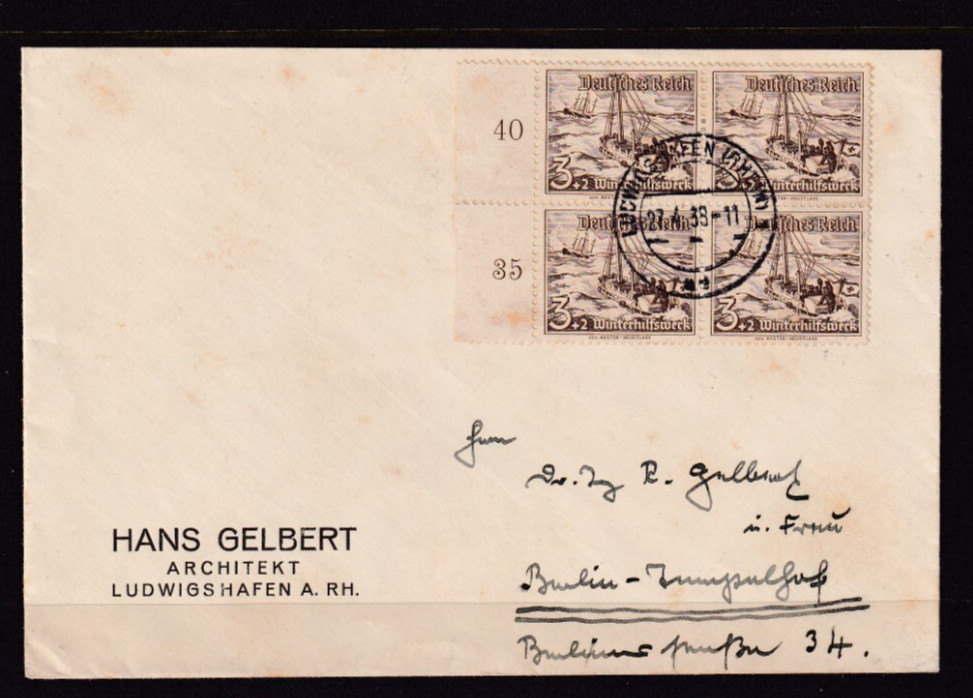 40
Deutsches Reich
Deutsches Reich
3+2 Winterhilfswerk
Winterhilfswerk
LUDWIGSHAFEN (RHEIN)
27.4.38-11
35
Deutsches Reich
Deutsches Reich
3+2 Winterhilfswerk
3+2 Winterhilfswerk
Herrn
Dr. Ing R. Gelbert
u. Frau
Berlin-Tempelhof
Berliner straße 34.
HANS GELBERT
ARCHITEKT
LUDWIGSHAFEN A. RH.